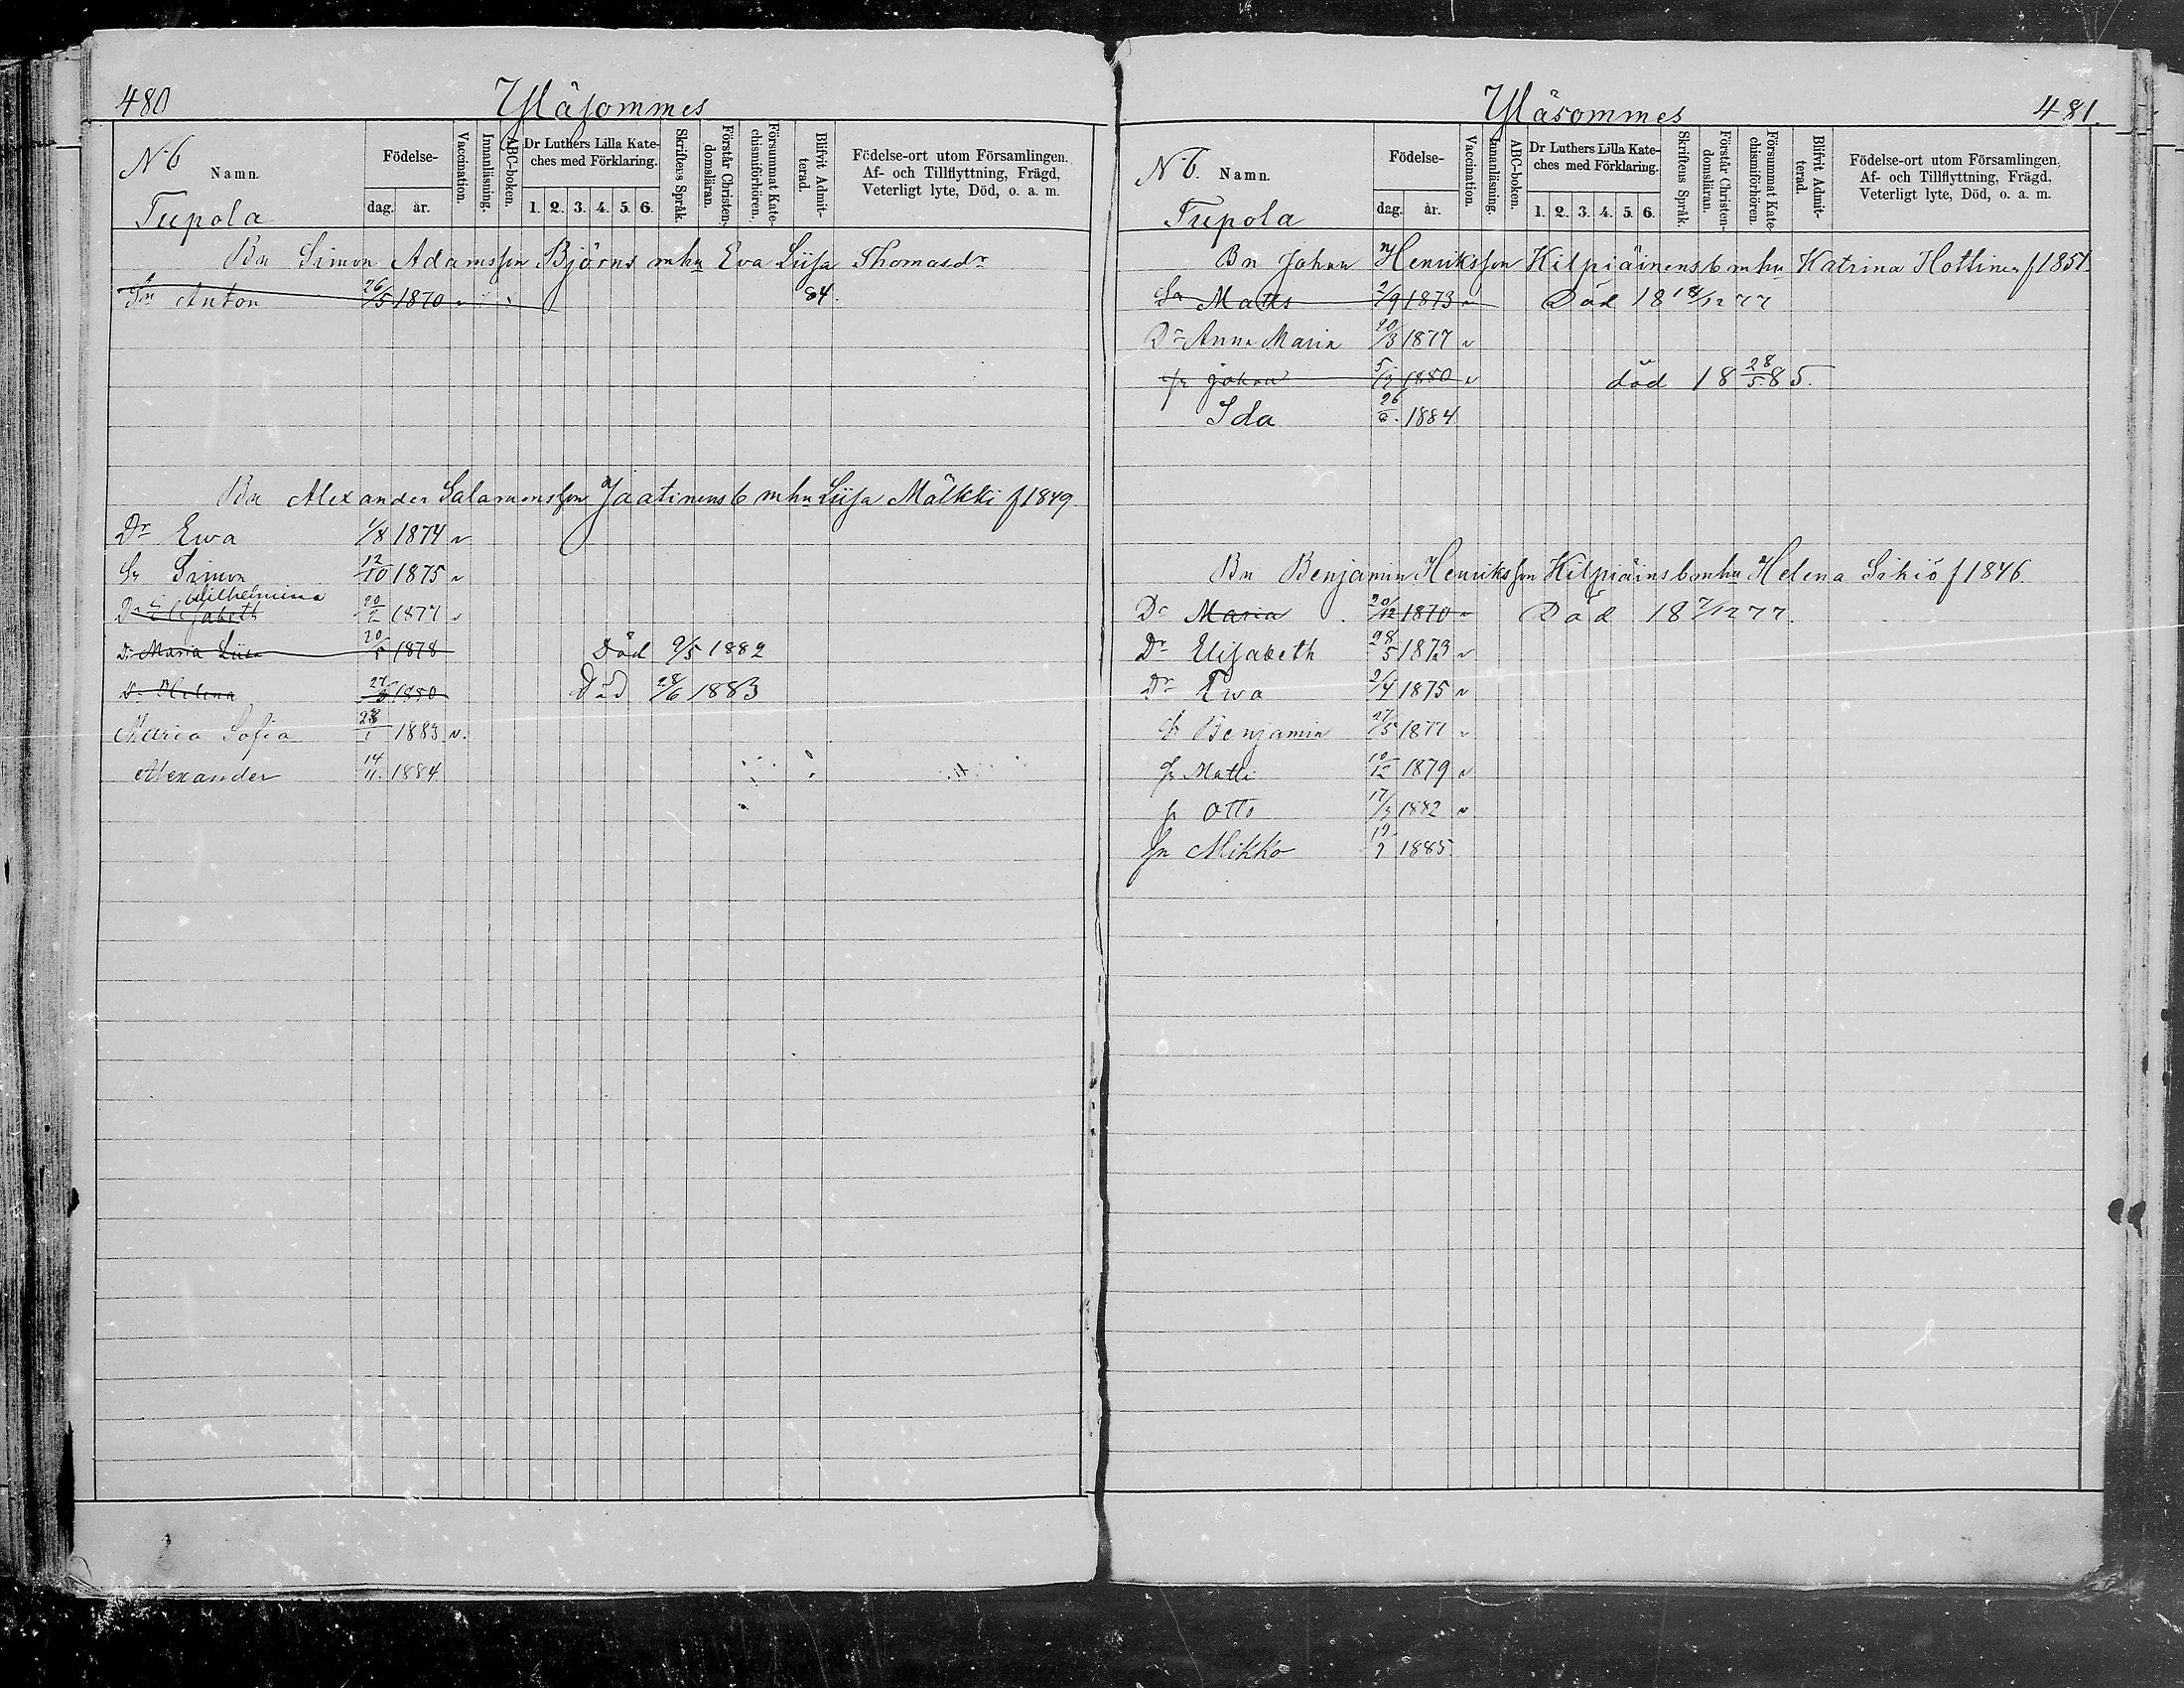 480
Yläsommes
N 6
Namn.
Tupola
Födelse-
dag. år.
Vaccination.
Innanläsning.
ABC-boken.
Dr Luthers Lilla Kate-
ches med Förklaring.
1. 2. 3. 4. 5. 6.
Skriftens Språk.
Förstår Christen-
domsläran.
Försummat Kate-
chismiförhören.
Blifvit Admit-
terad.
Födelse-ort utom Församlingen.
Af- och Tillflyttning, Frägd,
Veterligt lyte, Död, o. a. m.
Bn Simon Adamsson Björns mhu Eva Liisa Thomasdr
Sn Anton 26/5 1870 v 84.
Bn Alexander Salamonsson Jaatinens 6 mhu Liisa Mälkki f 1849.
Dr Ewa 1/8 1874 v
Sn Simon 12/10 1875 v
Wilhelmina
Dr Elisabeth 20/2 1877 v
Dr Maria Liisa 20/5 1878 Död 9/5 1882
Dr Helena 1880 Död 28/6 1883
Maria Sofia 28/1 1883 v.
Alexander 14/11. 1884
Yläsommes
481.
N 6.
Namn.
Tupola
Födelse-
dag. år.
Vaccination.
Innanläsning.
ABC-boken.
Dr Luthers Lilla Kate-
ches med Förklaring.
1. 2. 3. 4. 5. 6.
Skriftens Språk.
Förstår Christen-
domsläran.
Försummat Kate-
chismiförhören.
Blifvit Admit-
terad.
Födelse-ort utom Församlingen,
Af- och Tillflyttning, Frägd,
Veterligt lyte, Död, o. a. m.
Bn Johan Henriksson Kilpiäinens 6 mhu Katrina Hottinen f 1851.
Sn Matts 2/9 1873 v Död 18 18/12 77
Dr Anna Maria 20/3 1877 v
Sn Johan 1880 v död 18 28/5 85.
Ida 1884
Bn Benjamin Henriksson Kilpiäins 6 mhu Helena Sihiö f 1846
Dr Maria 20/12 1870 v Död 18 7/12 77.
Dr Elisabeth 28/5 1873 v
Dr Ewa 2/4 1875 v
Sn Benjamin 27/5 1877 v
Sn Matti 10/12 1879 v
Sn Otto 17/3 1882 v
Sn Mikko 1885